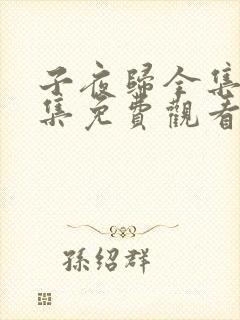 子夜歸全集
集免費觀看
孫紹群